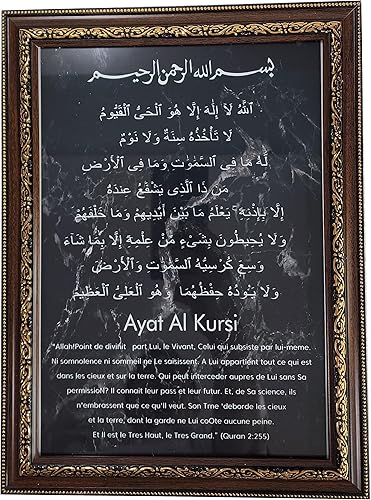 بسم الله الرحمن الرحيم
ٱللَّهُ لَآ إِلَٰهَ إِلَّا هُوَ ٱلْحَىُّ ٱلْقَيُّومُ
لَا تَأْخُذُهُۥ سِنَةٌ وَلَا نَوْمٌ
لَّهُۥ مَا فِى ٱلسَّمَٰوَٰتِ وَمَا فِى ٱلْأَرْضِ
مَن ذَا ٱلَّذِى يَشْفَعُ عِندَهُۥٓ
إِلَّا بِإِذْنِهِۦ يَعْلَمُ مَا بَيْنَ أَيْدِيهِمْ وَمَا خَلْفَهُمْ
وَلَا يُحِيطُونَ بِشَىْءٍ مِّنْ عِلْمِهِۦٓ إِلَّا بِمَا شَآءَ
وَسِعَ كُرْسِيُّهُ ٱلسَّمَٰوَٰتِ وَٱلْأَرْضَ
وَلَا يَـُٔودُهُۥ حِفْظُهُمَا وَهُوَ ٱلْعَلِىُّ ٱلْعَظِيمُ
Ayat Al Kursi
"Allah!Point de divinit part Lui, le Vivant, Celui qui subsiste par lui-meme.
Ni somnolence ni sommeil ne Le saisissent. A Lui appartient tout ce qui est
dans les cieux et sur la terre. Qui peut interceder aupres de Lui sans Sa
permissioN? Il connait leur pass et leur futur. Et, de Sa science, ils
n'embrassent que ce qu'Il veut. Son Trne 'deborde les cieux
et la terre, dont la garde ne Lui coOte aucune peine.
Et Il est le Tres Haut, le Tres Grand." (Quran 2:255)